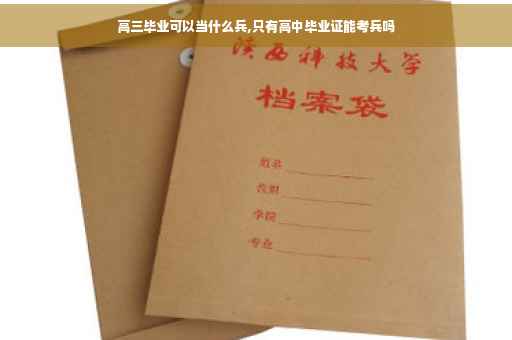 高三毕业可以当什么兵,只有高中毕业证能考兵吗
陕西科技大学
档案袋
姓名
性别
学院
专业